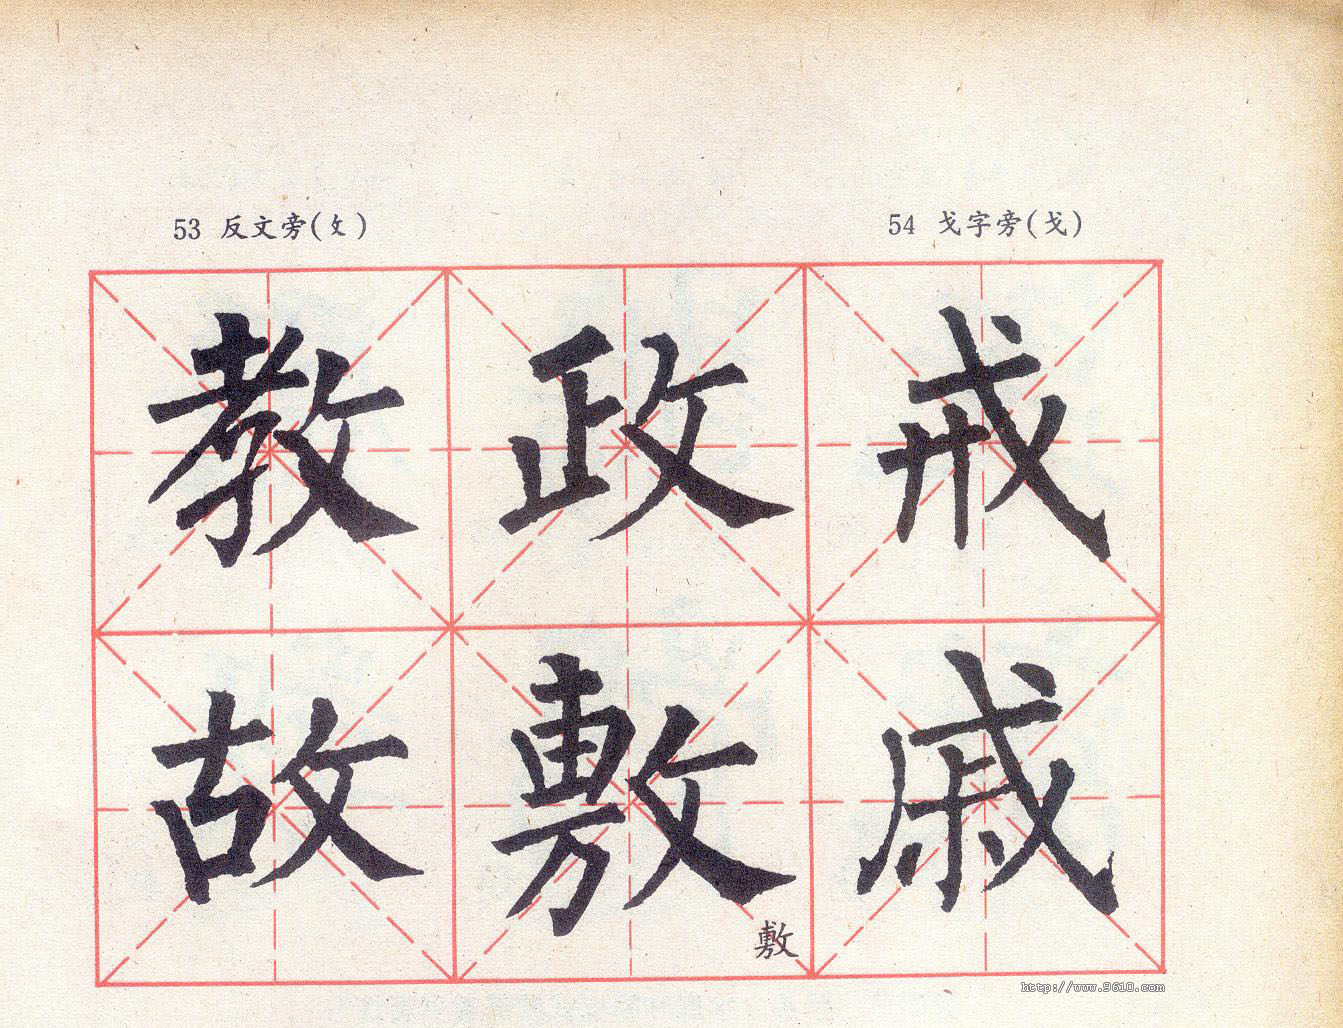 53 反文旁(攵)
54 戈字旁(戈)
教政戒
故敷戚
敷
http://www.9610.com